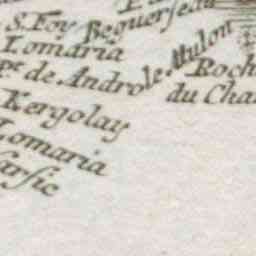 S. Foy
Beguerseau
Lomaria
Pte. de Androle
Mulon
Roch
du Cha
Kergolay
Lomaria
arsic